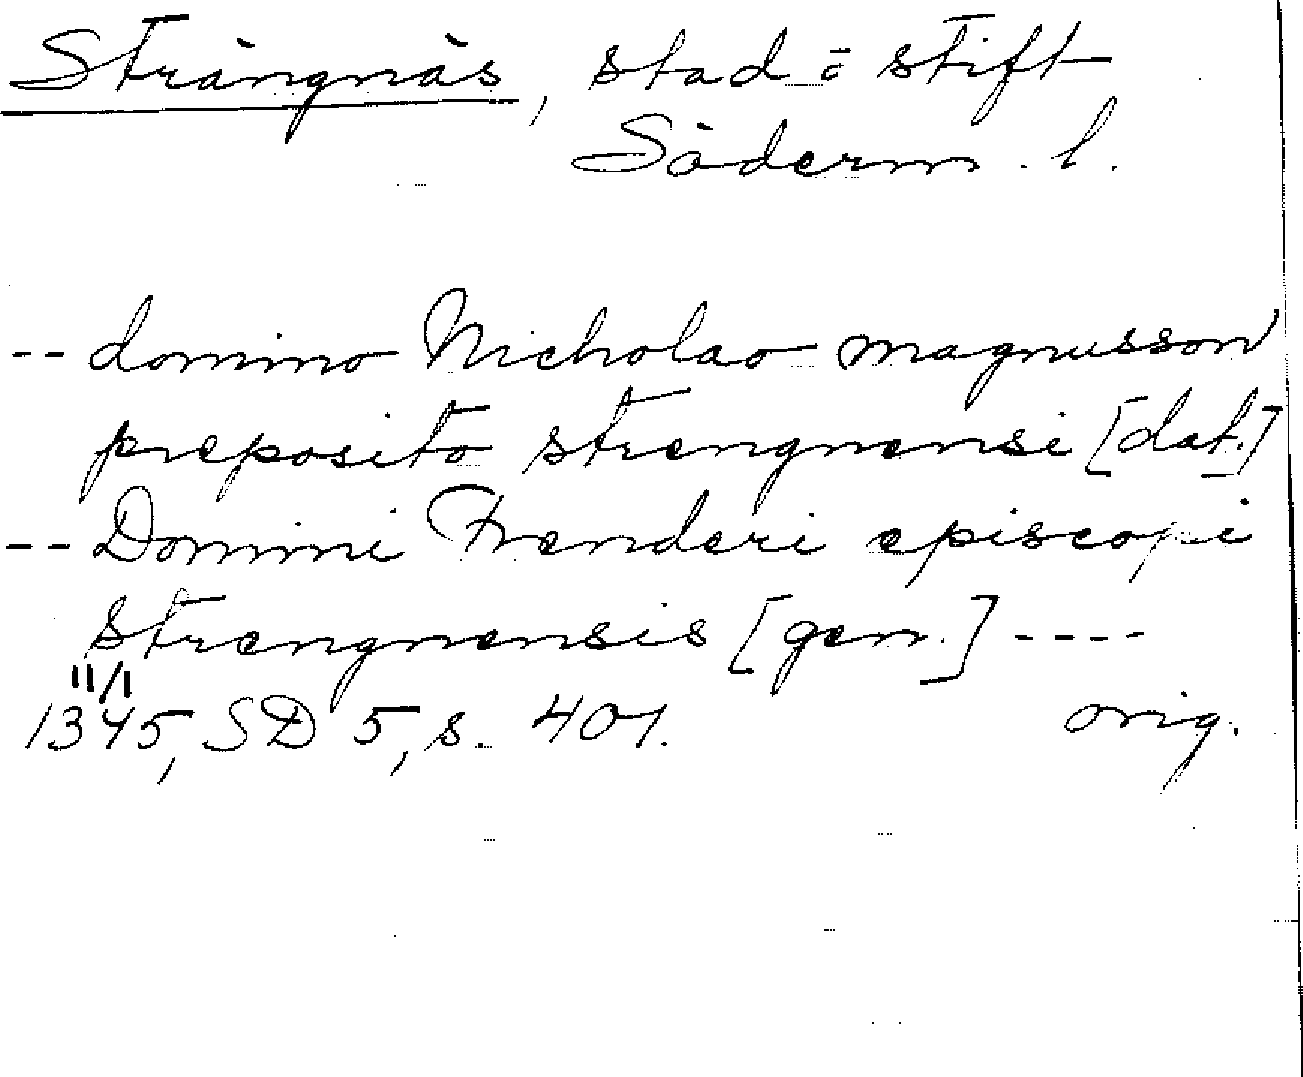 Strängnäs, stad o stift
Söderm. l.
-- domino Nicholao magnusson
preposito strengnensi [dat.]
-- Domini Frenderi episcopi
strengnensis [gen.] ----
11/1
1345, SD 5, s. 401. orig.